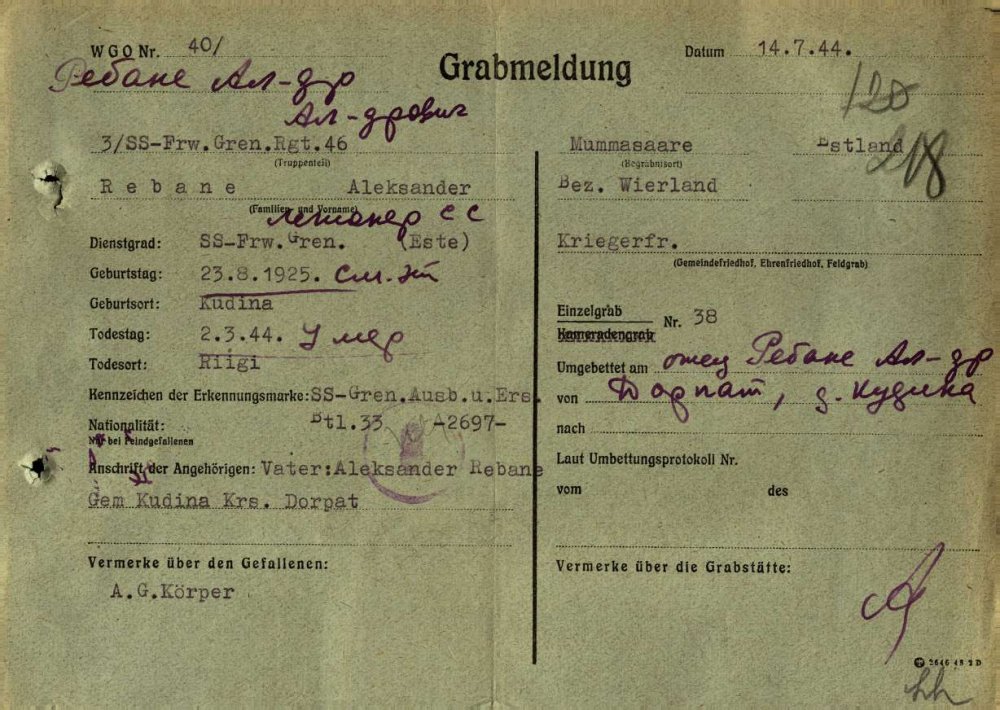 WGO Nr. 40/
Grabmeldung
Datum 14.7.44.
Ребане Ал-др
Ал-дрович
120
218
3/SS-Frw.Gren.Rgt.46
(Truppenteil)
Rebane Aleksander
(Familien- und Vorname)
СС
Dienstgrad: SS-Frw.Gren. (Este)
Geburtstag: 23.8.1925.
Geburtsort: Kudina
Todestag: 2.3.44. Умер
Todesort: Riigi
Kennzeichen der Erkennungsmarke: SS-Gren.Ausb.u.Ers.
Btl.33 -A2697-
Nationalität:
Nur bei Feindgefallenen
Anschrift der Angehörigen: Vater:Aleksander Rebane
Gem Kudina Krs. Dorpat
Vermerke über den Gefallenen:
A.G.Körper
Mummasaare Estland
(Begräbnisort)
Bez. Wierland
Kriegerfr.
(Gemeindefriedhof, Ehrenfriedhof, Feldgrab)
Einzelgrab
Kameradengrab
Nr. 38
Umgebettet am отец Ребане Ал-др
von Дорпат, д. Кудина
nach
Laut Umbettungsprotokoll Nr.
vom des
Vermerke über die Grabstätte:
2646 48 2 D